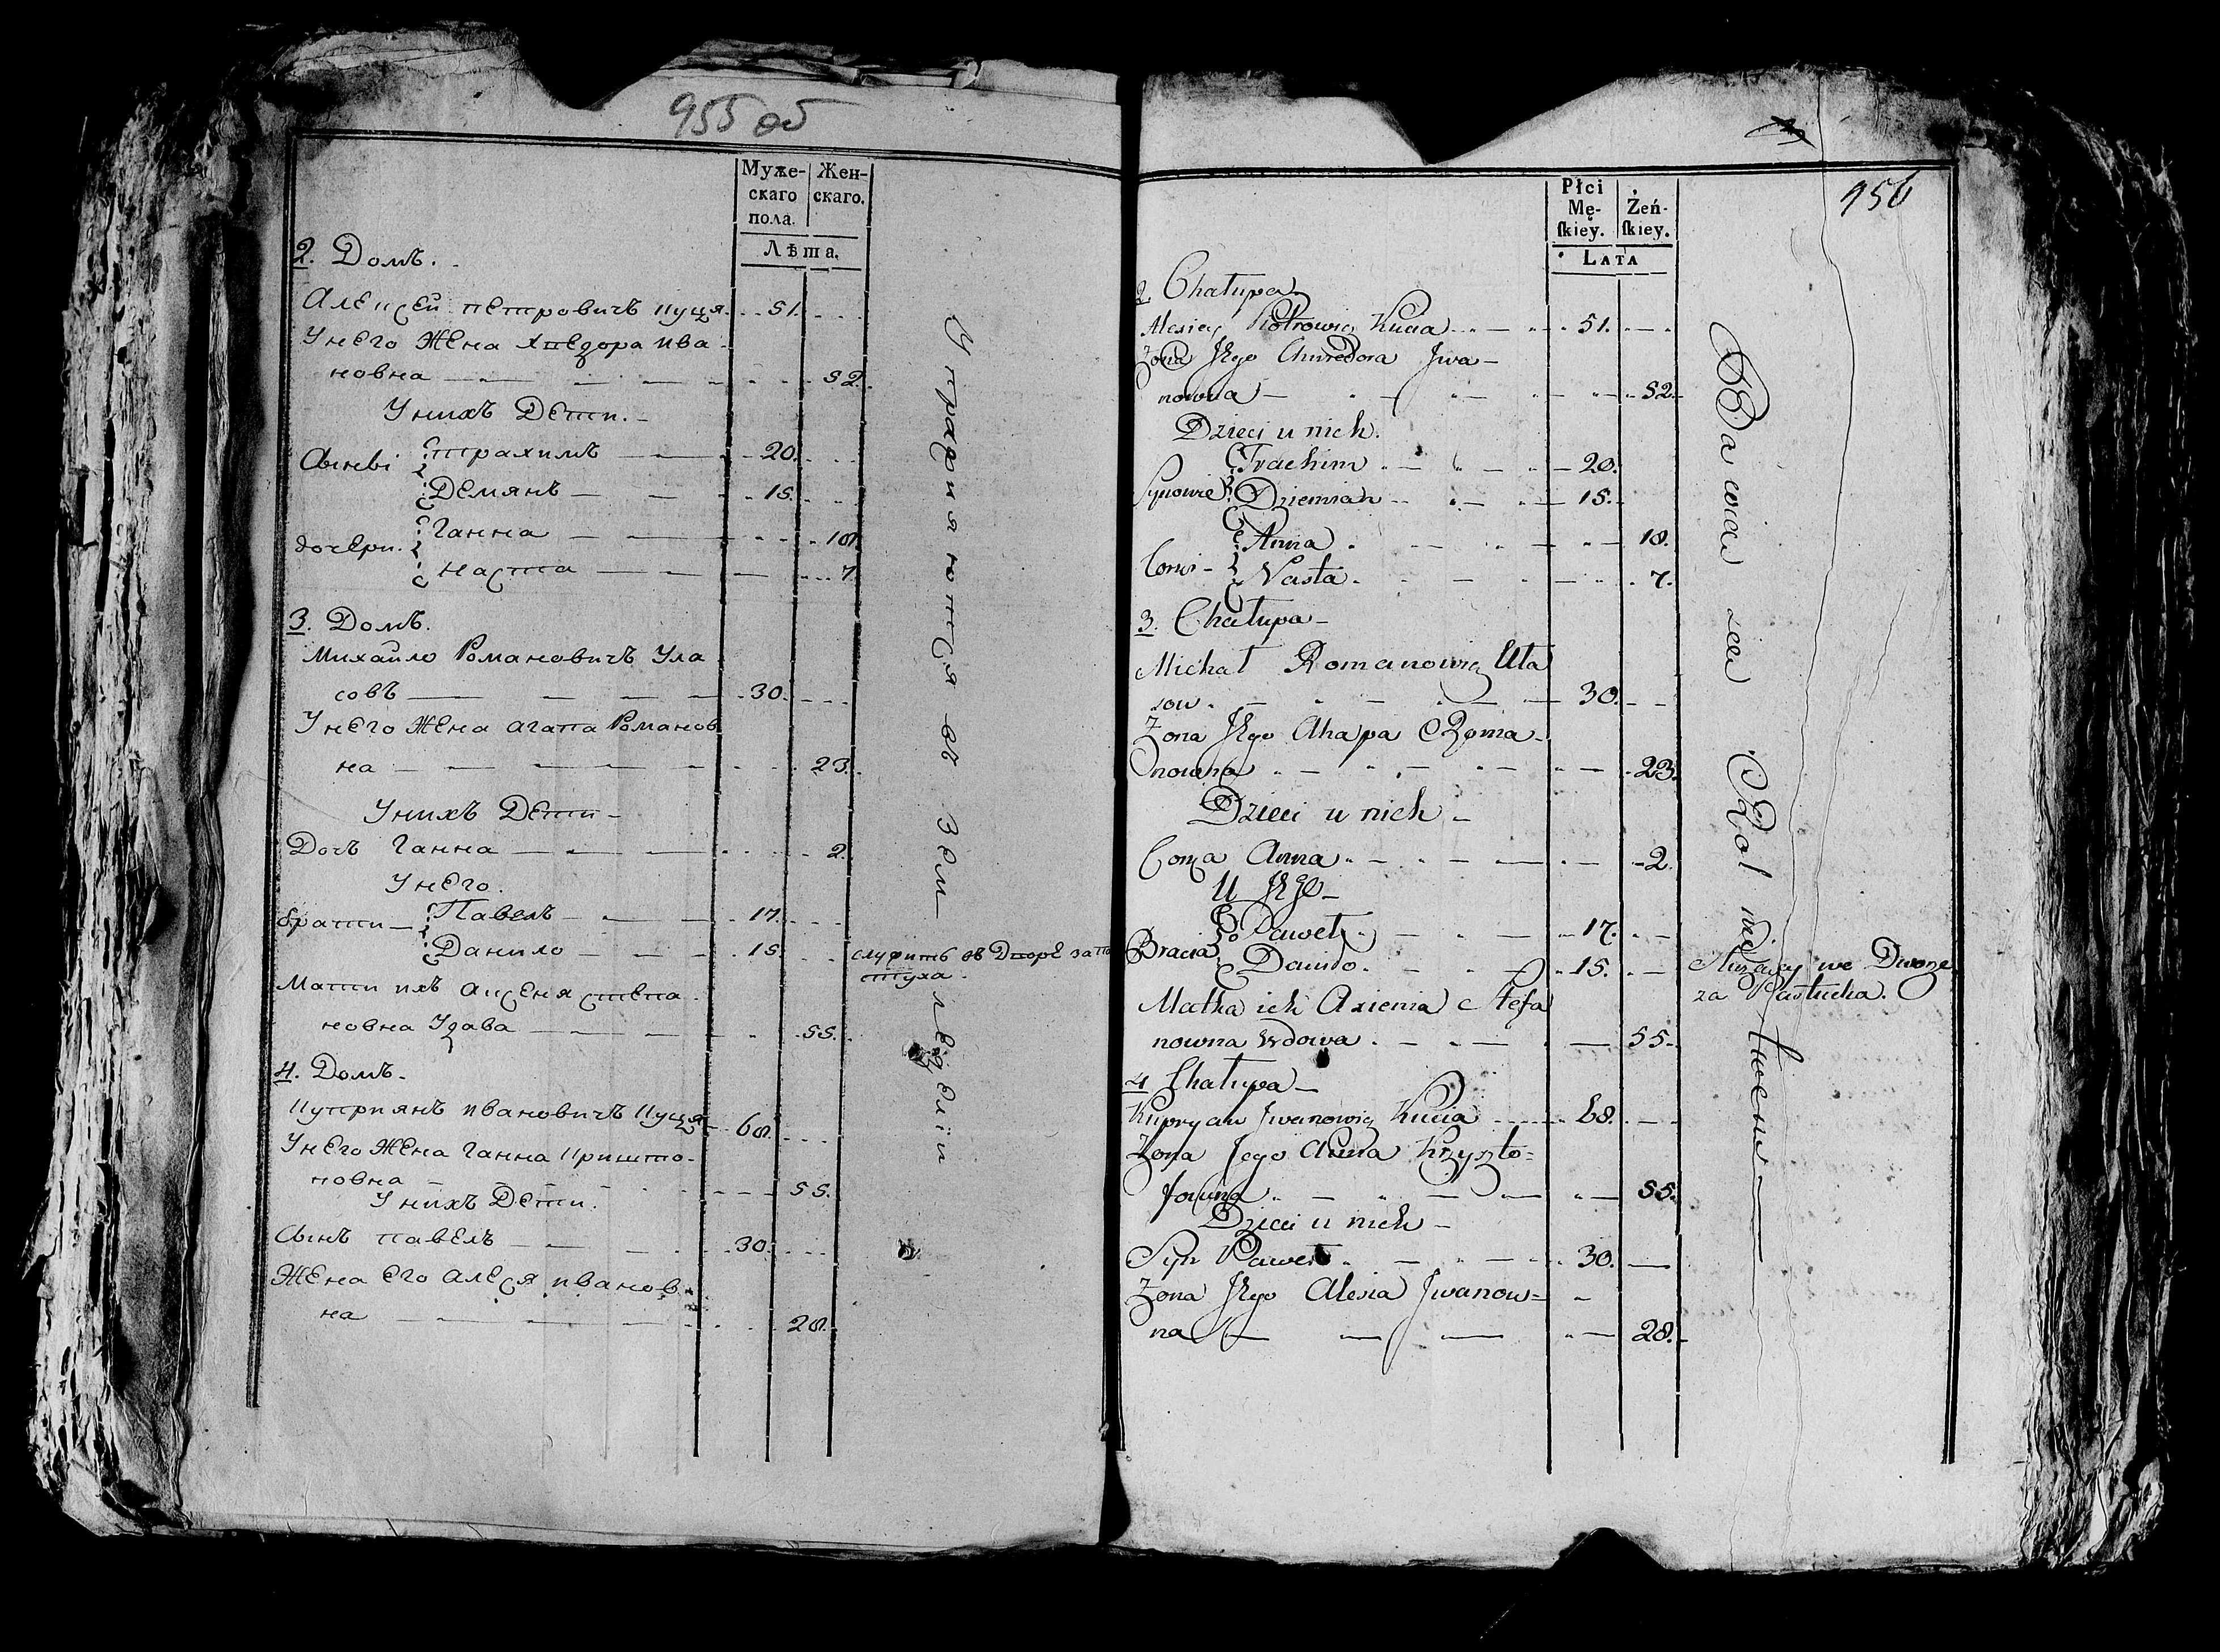 955 об
Муже- Жен-
скаго скаго.
пола.
Лѣта.
2. Домъ.
Алексей петровичъ куця 51.
У него Жена хведора ива-
новна 52.
У нихъ Дети.
Сыны трахимъ 20.
Демянъ 15.
дочери Ганна 18.
Наста 7.
3. Домъ.
Михайло Романовичъ Ула
совъ 30.
У него Жена агапа Романов
на 23.
У нихъ Дети
Дочь Ганна 2.
У него.
братти Павелъ 17.
Данило 15. служитъ въ Дворе за па
стуха.
Матти ихъ аксеня степа
новна Удава 55.
4. Домъ.
куприянъ ивановичъ куця 68.
У него Жена Ганна кришто-
повна 55.
У нихъ Дети.
Сынъ павелъ 30.
Жена его алеся иванов-
на 28.
Упражняются въ земледелiи
956
Płci Żeń-
Mę- skiey.
skiey.
LATA
2. Chałupa
Alexiey Piotrowicz Kucia 51.
Zona Jego Chwiedora Jwa-
nowna 52.
Dzieci u nich.
Synowie Trachim 20.
Dziemian 15.
Corki Anna 18.
Nasta 7.
3. Chałupa
Michał Romanowicz Uła
sow 30.
Zona Jego Ahapa Roma-
nowna 23.
Dzieci u nich
Corka Anna 2.
U Jego
Bracia Paweł 17.
Daniło 15. Służący we Dworze
za Pastucha.
Matka ich Axienia Stefa
nowna Wdowa 55.
4 Chałupa
Kupryan Jwanowicz Kucia 68.
Zona Jego Anna Krzyszto=
fowna 55.
Dzieci u nich
Syn Paweł 30.
Zona Jego Alesia Jwanow=
na 28.